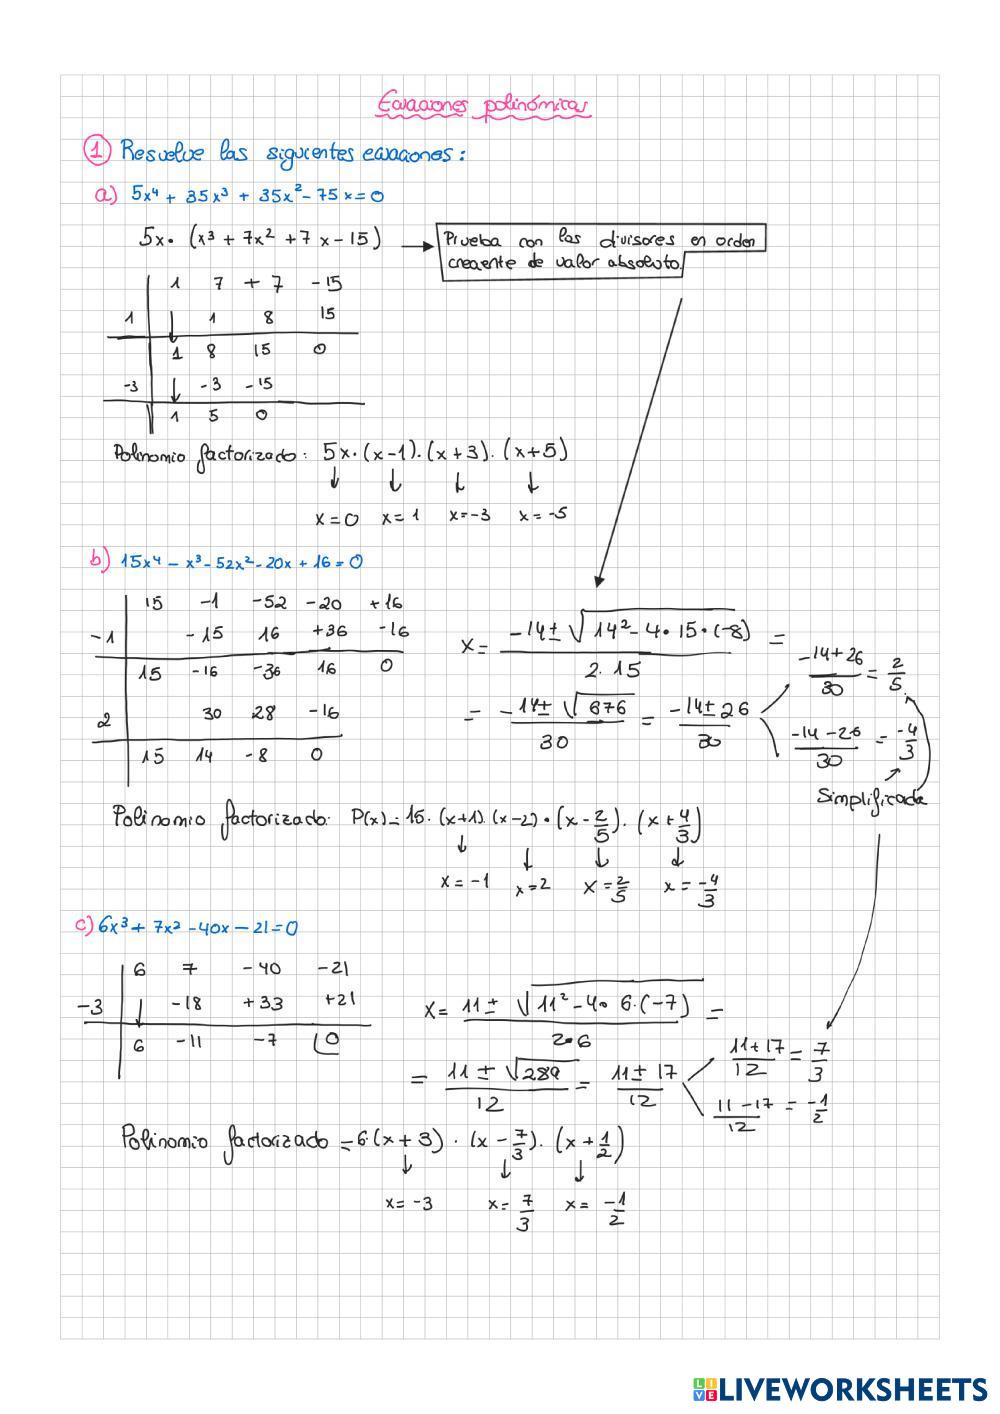 Ecuaciones polinómicas
1 Resuelve las siguientes ecuaciones:
a) 5x⁴ + 35x³ + 35x² - 75x = 0
5x · (x³ + 7x² + 7x - 15) → Prueba con los divisores en orden
creciente de valor absoluto.
1 7 + 7 - 15
1 ↓ 1 8 15
1 8 15 0
-3 ↓ -3 -15
1 5 0
Polinomio factorizado: 5x · (x-1) · (x+3) · (x+5)
↓ ↓ ↓ ↓
x=0 x=1 x=-3 x=-5
b) 15x⁴ - x³ - 52x² - 20x + 16 = 0
15 -1 -52 -20 +16
-1 -15 16 +36 -16
15 -16 -36 16 0
2 30 28 -16
15 14 -8 0
x = (-14 ± √(14² - 4 · 15 · (-8))) / (2 · 15) =
= (-14 ± √676) / 30 = (-14 ± 26) / 30
(-14 + 26) / 30 = 2/5
(-14 - 26) / 30 = -4/3
Simplificada
Polinomio factorizado: P(x) = 15 · (x+1) · (x-2) · (x - 2/5) · (x + 4/3)
↓ ↓ ↓ ↓
x = -1 x = 2 x = 2/5 x = -4/3
c) 6x³ + 7x² - 40x - 21 = 0
6 7 -40 -21
-3 ↓ -18 +33 +21
6 -11 -7 0
x = (11 ± √(11² - 4 · 6 · (-7))) / (2 · 6) =
= (11 ± √289) / 12 = (11 ± 17) / 12
(11 + 17) / 12 = 7/3
(11 - 17) / 12 = -1/2
Polinomio factorizado = 6 (x + 3) · (x - 7/3) · (x + 1/2)
↓ ↓ ↓
x = -3 x = 7/3 x = -1/2
LIVE LIVEWORKSHEETS